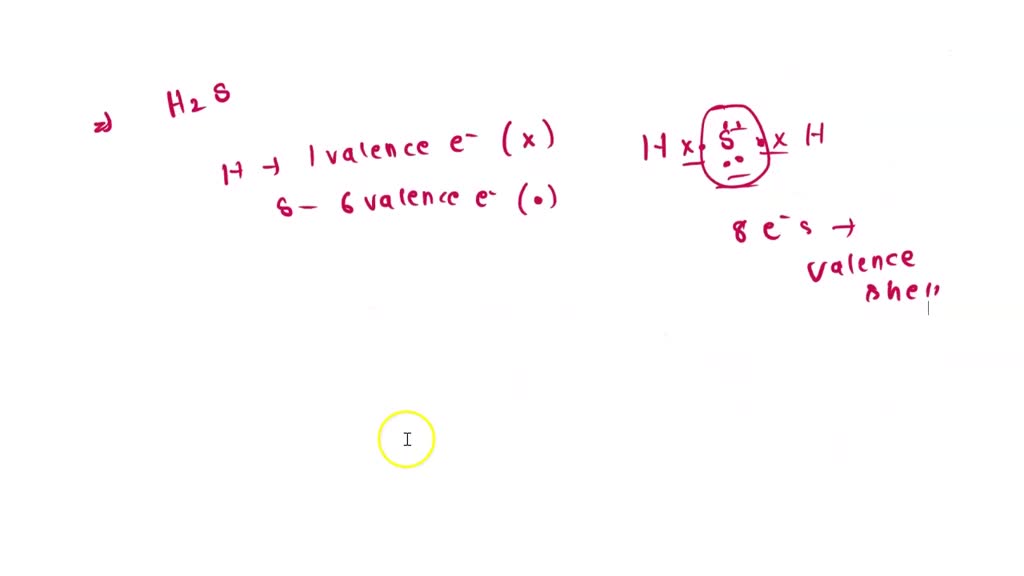 ⇒ H₂S
H → 1 valence e⁻ (x)
S – 6 valence e⁻ (•)
H x • S • x H
8 e⁻s →
valence
shell